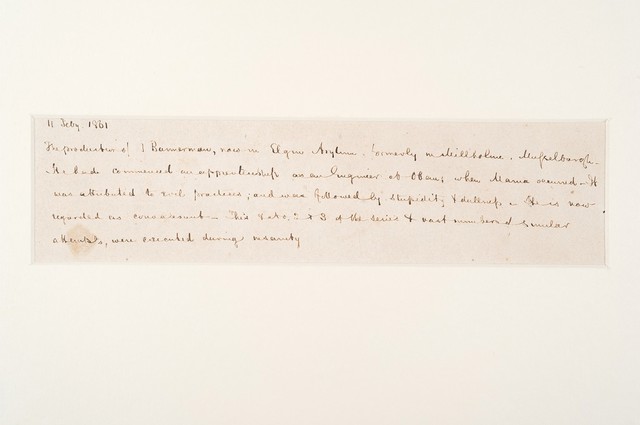 11 Feby. 1861
The production of J Bannerman, now in Elgin Asylum, formerly in Millholme, Musselburgh.
He had commenced an apprenticeship as an Engineer at Oban, when Mania occurred - It
was attributed to evil practices; and was followed by stupidity & dullness - He is now
regarded as convalescent - This & 2 & 3 of the series & vast numbers of similar
attempts, were executed during insanity